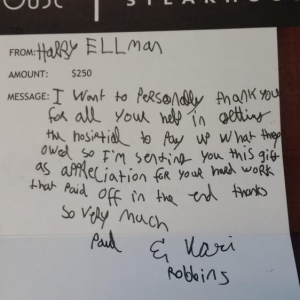 OUSE | STEAKHOUS
FROM: Harry ELLman
AMOUNT: $250
MESSAGE: I Want to Personally thank you
for all your help in getting
the hospital to Pay up What they
owed so I'm sending you this gift
as appreciation for your hard work
that Paid off in the end thanks
so very much
Paul & Kari
Robbins